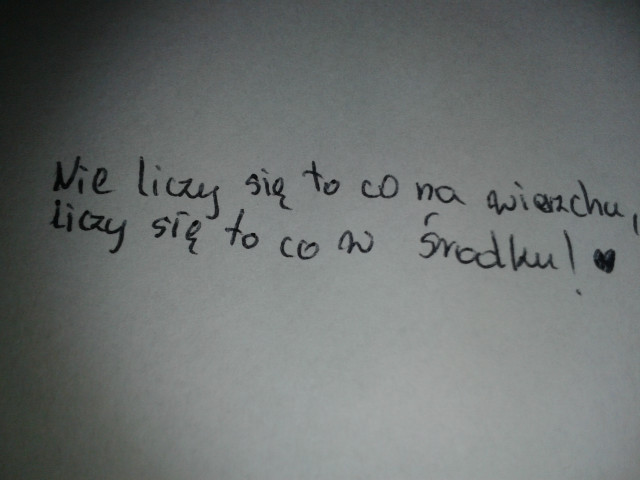 Nie liczy się to co na wierzchu,
liczy się to co w środku! ♥